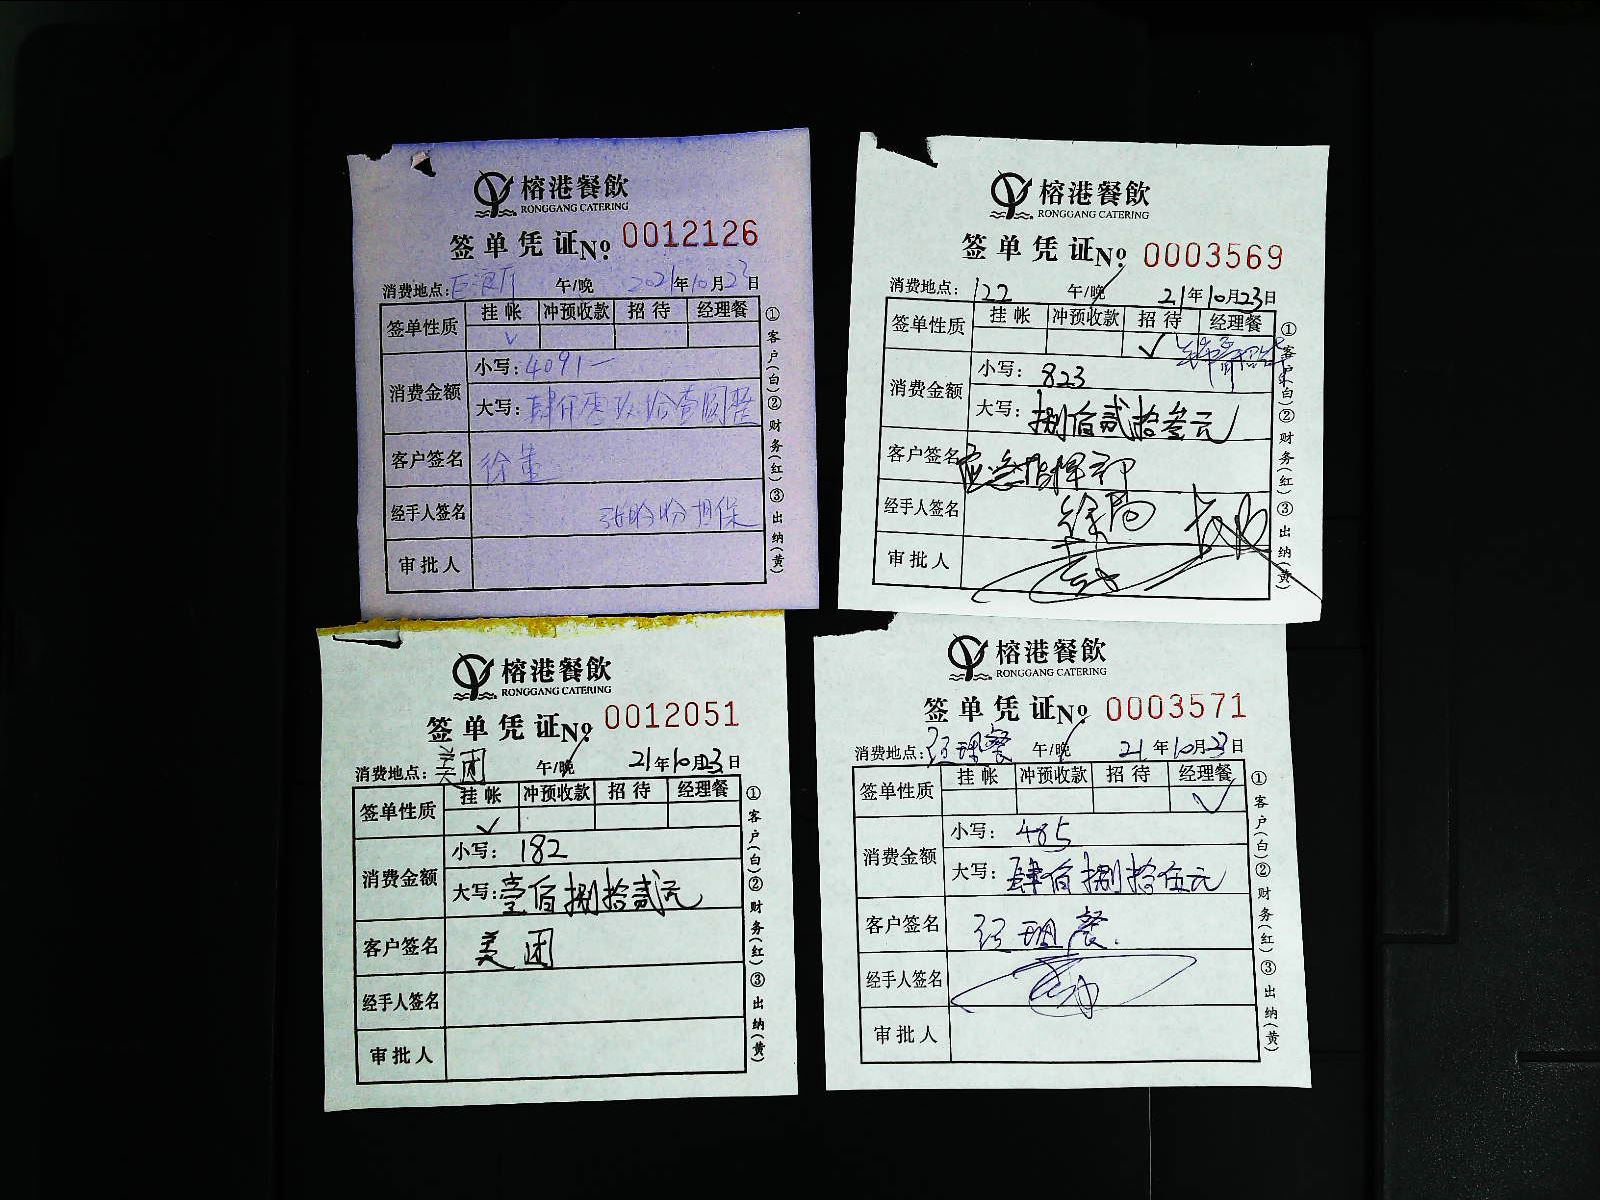 榕港餐飲
RONGGANG CATERING
签单凭证№ 0012126
消费地点: 午/晚 2021年10月23日
签单性质 挂帐 冲预收款 招待 经理餐
✓
消费金额 小写: 4091—
大写: 肆仟零玖拾壹圆整
客户签名 徐董
经手人签名 担保
审批人
①客户(白)②财务(红)③出纳(黄)
榕港餐飲
RONGGANG CATERING
签单凭证№ 0003569
消费地点: 122 午/晚 21年10月23日
签单性质 挂帐 冲预收款 招待 经理餐
✓
消费金额 小写: 823
大写: 捌佰贰拾叁元
客户签名 应急指挥部
经手人签名 徐局
审批人
①客户(白)②财务(红)③出纳(黄)
榕港餐飲
RONGGANG CATERING
签单凭证№ 0012051
消费地点: 美团 午/晚 21年10月23日
签单性质 挂帐 冲预收款 招待 经理餐
✓
消费金额 小写: 182
大写: 壹佰捌拾贰元
客户签名 美团
经手人签名
审批人
①客户(白)②财务(红)③出纳(黄)
榕港餐飲
RONGGANG CATERING
签单凭证№ 0003571
消费地点: 经理餐 午/晚 21年10月23日
签单性质 挂帐 冲预收款 招待 经理餐
✓
消费金额 小写: 485
大写: 肆佰捌拾伍元
客户签名 经理餐.
经手人签名
审批人
①客户(白)②财务(红)③出纳(黄)